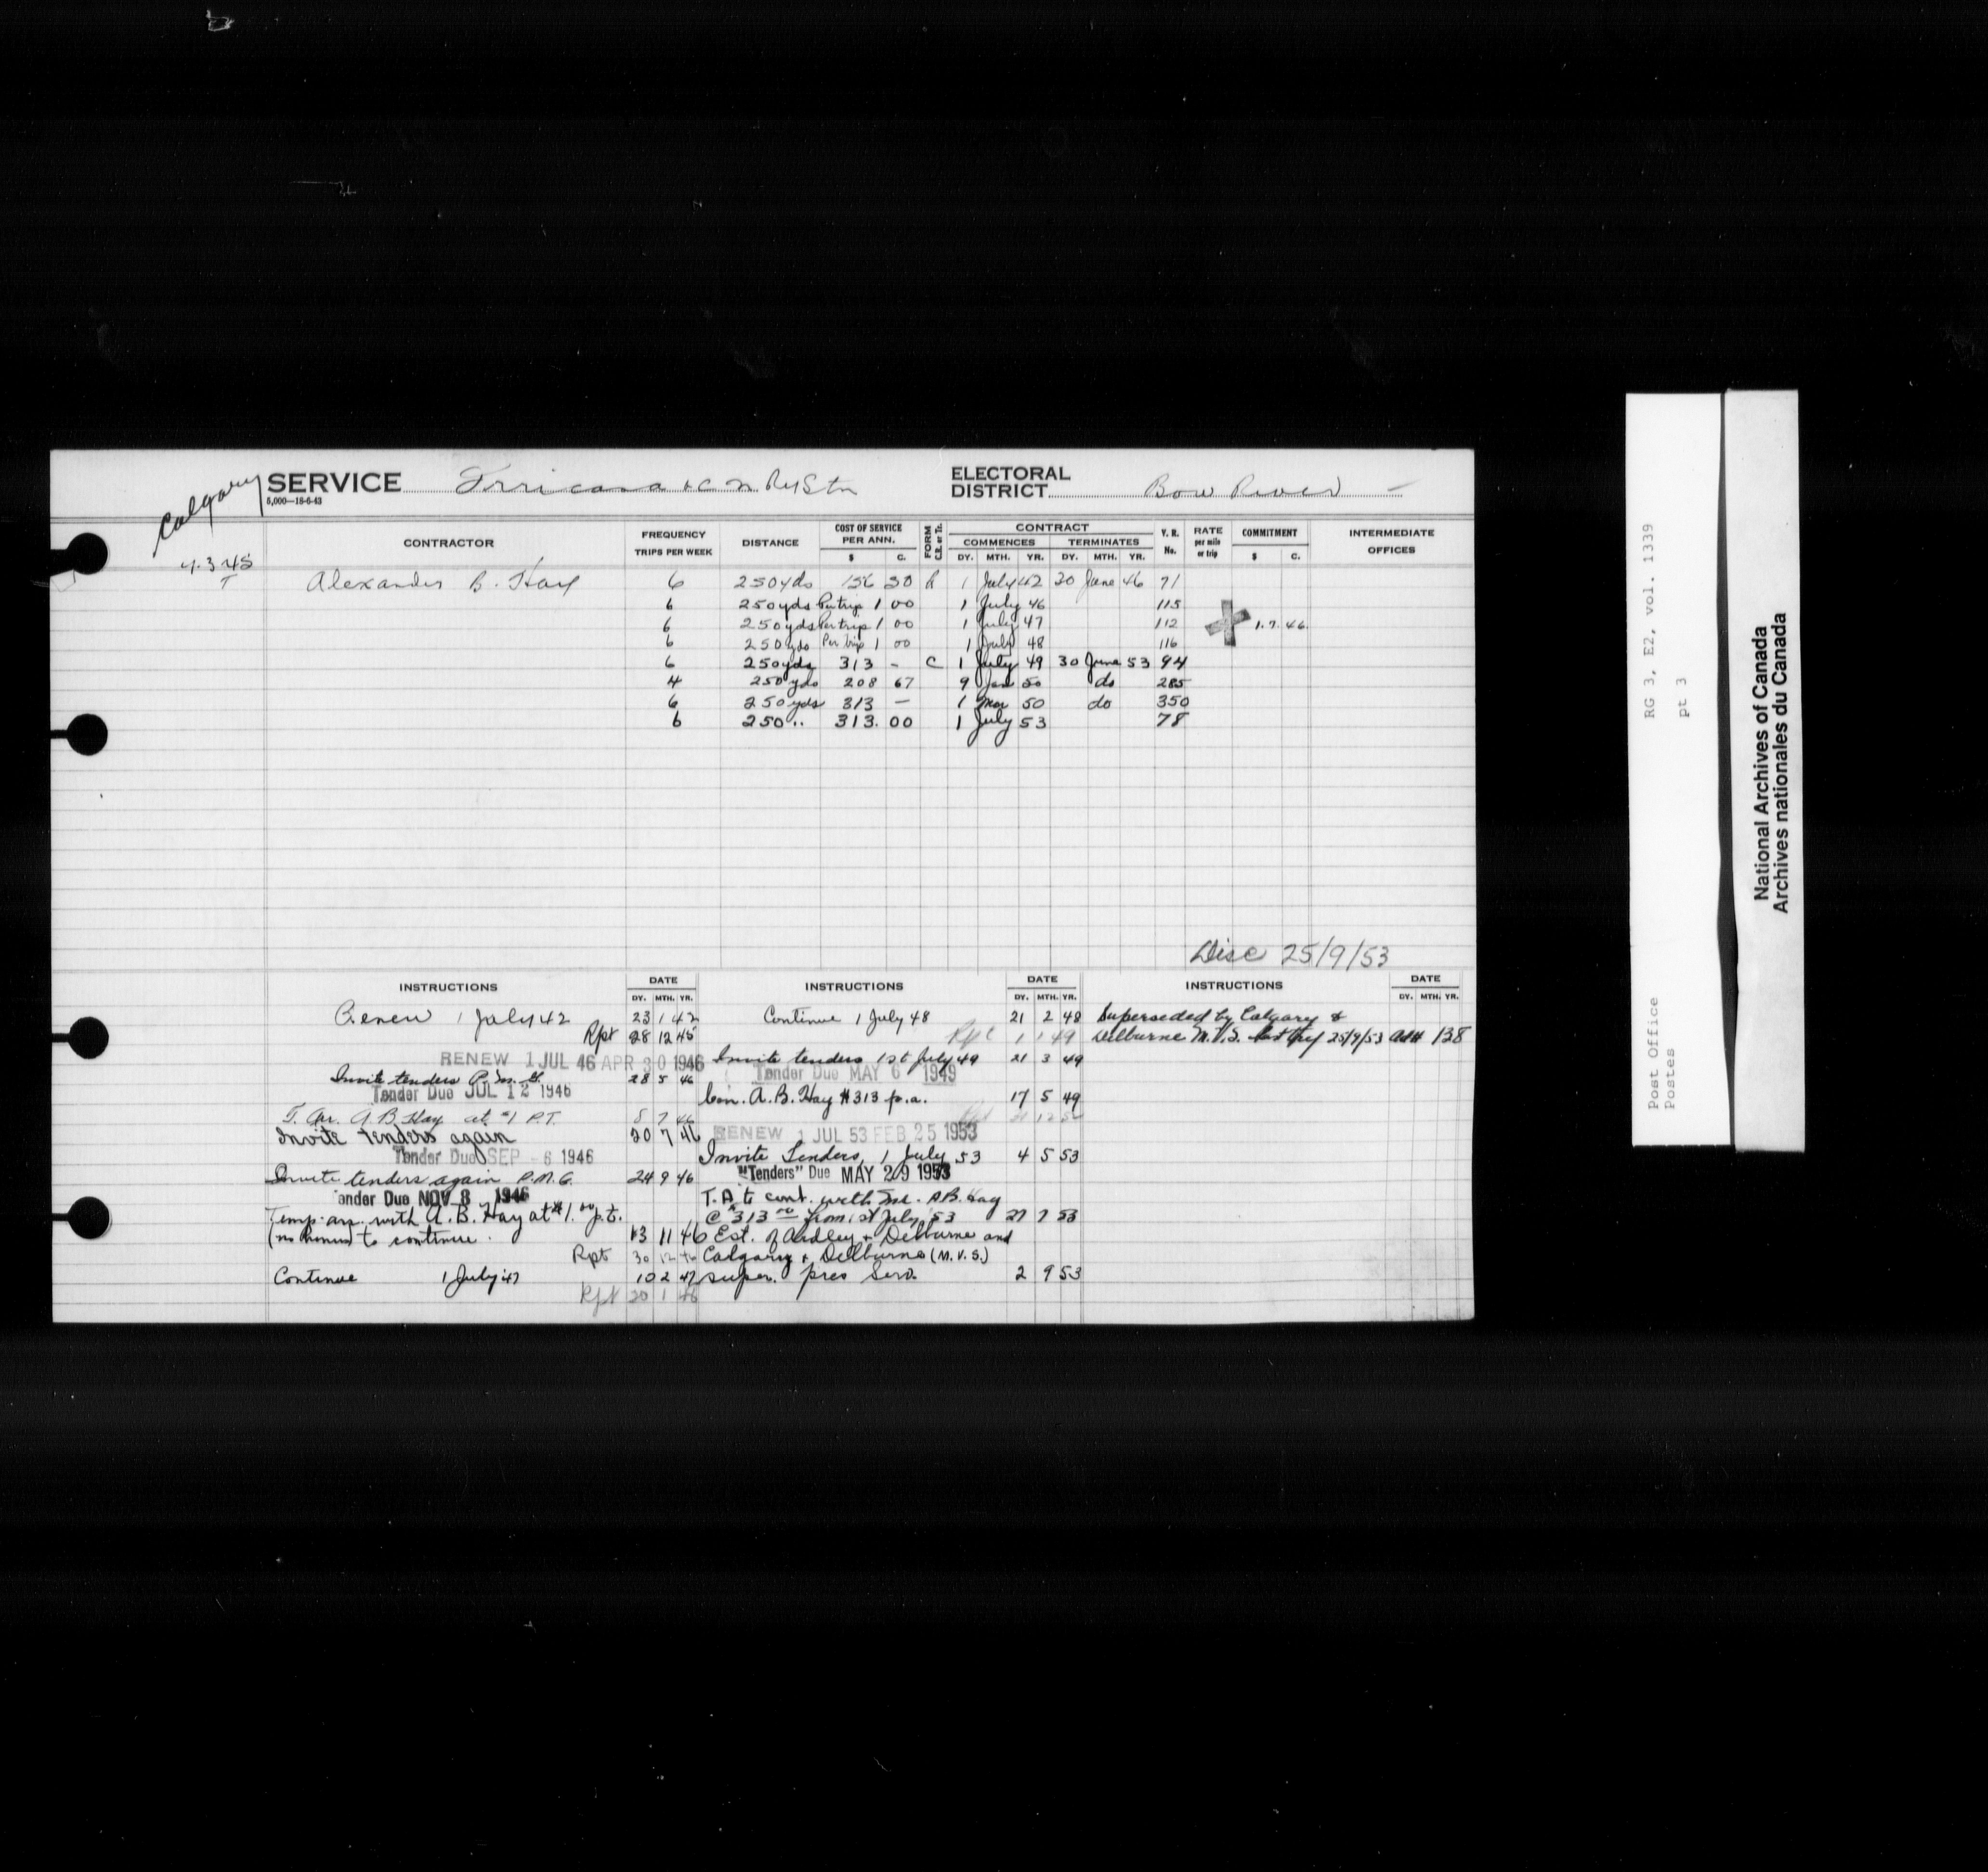 Calgary SERVICE Irricana & C N Ry Stn ELECTORAL DISTRICT Bow River
5,000—18-6-43
CONTRACTOR FREQUENCY TRIPS PER WEEK DISTANCE COST OF SERVICE PER ANN. $ C. FORM C.B. or Tr. CONTRACT COMMENCES DY. MTH. YR. TERMINATES DY. MTH. YR. V. R. No. RATE per mile or trip COMMITMENT $ C. INTERMEDIATE OFFICES
4.3.45
T
Alexander B. Hay 6 250 yds 156 50 R 1 July 42 30 June 46 71
6 250 yds Per trip 1 00 1 July 46 115
6 250 yds Per trip 1 00 1 July 47 112 1.7.46.
6 250 yds Per trip 1 00 1 July 48 116
6 250 yds 313 - C 1 July 49 30 June 53 94
4 250 yds 208 67 9 Jan 50 do 285
6 250 yds 313 — 1 Mar 50 do 350
6 250 " 313. 00 1 July 53 78
Disc 25/9/53
INSTRUCTIONS DATE DY. MTH. YR.
Renew 1 July 42 23 1 42
Rpt 28 12 45
RENEW 1 JUL 46 APR 30 1946
Invite tenders P.M.G. 28 5 46
Tender Due JUL 12 1946
T. Arr. A. B. Hay at $1 P.T. 5 7 46
Invite tenders again 20 7 46
Tender Due SEP -6 1946
Invite tenders again P.M.G. 24 9 46
ender Due NOV 8 1946
Temp. arr. with A. B. Hay at $1.00 p.t.
(no bonus) to continue. 13 11 46
Rpt 30 12 46
Continue 1 July 47 10 2 47
Rpt 20 1 48
INSTRUCTIONS DATE DY. MTH. YR.
Continue 1 July 48 21 2 48
Rpt 1 1 49
Invite tenders 1st July 49 21 3 49
Tender Due MAY 6 1949
Con. A. B. Hay $313 p.a. 17 5 49
RENEW 1 JUL 53 FEB 25 1953
Invite Tenders, 1 July 53 4 5 53
"Tenders" Due MAY 29 1953
T. A to cont. with Mr. A B. Hay
@ $313 00 from 1st July '53 27 7 53
Est. of Ardley & Delburne and
Calgary & Delburne (M.V.S.)
super. pres Serv. 2 9 53
INSTRUCTIONS DATE DY. MTH. YR.
Superseded by Calgary &
Delburne M.V.S. last trip 25/9/53 138
RG 3, E2, vol. 1339
pt 3
Post Office
Postes
National Archives of Canada
Archives nationales du Canada